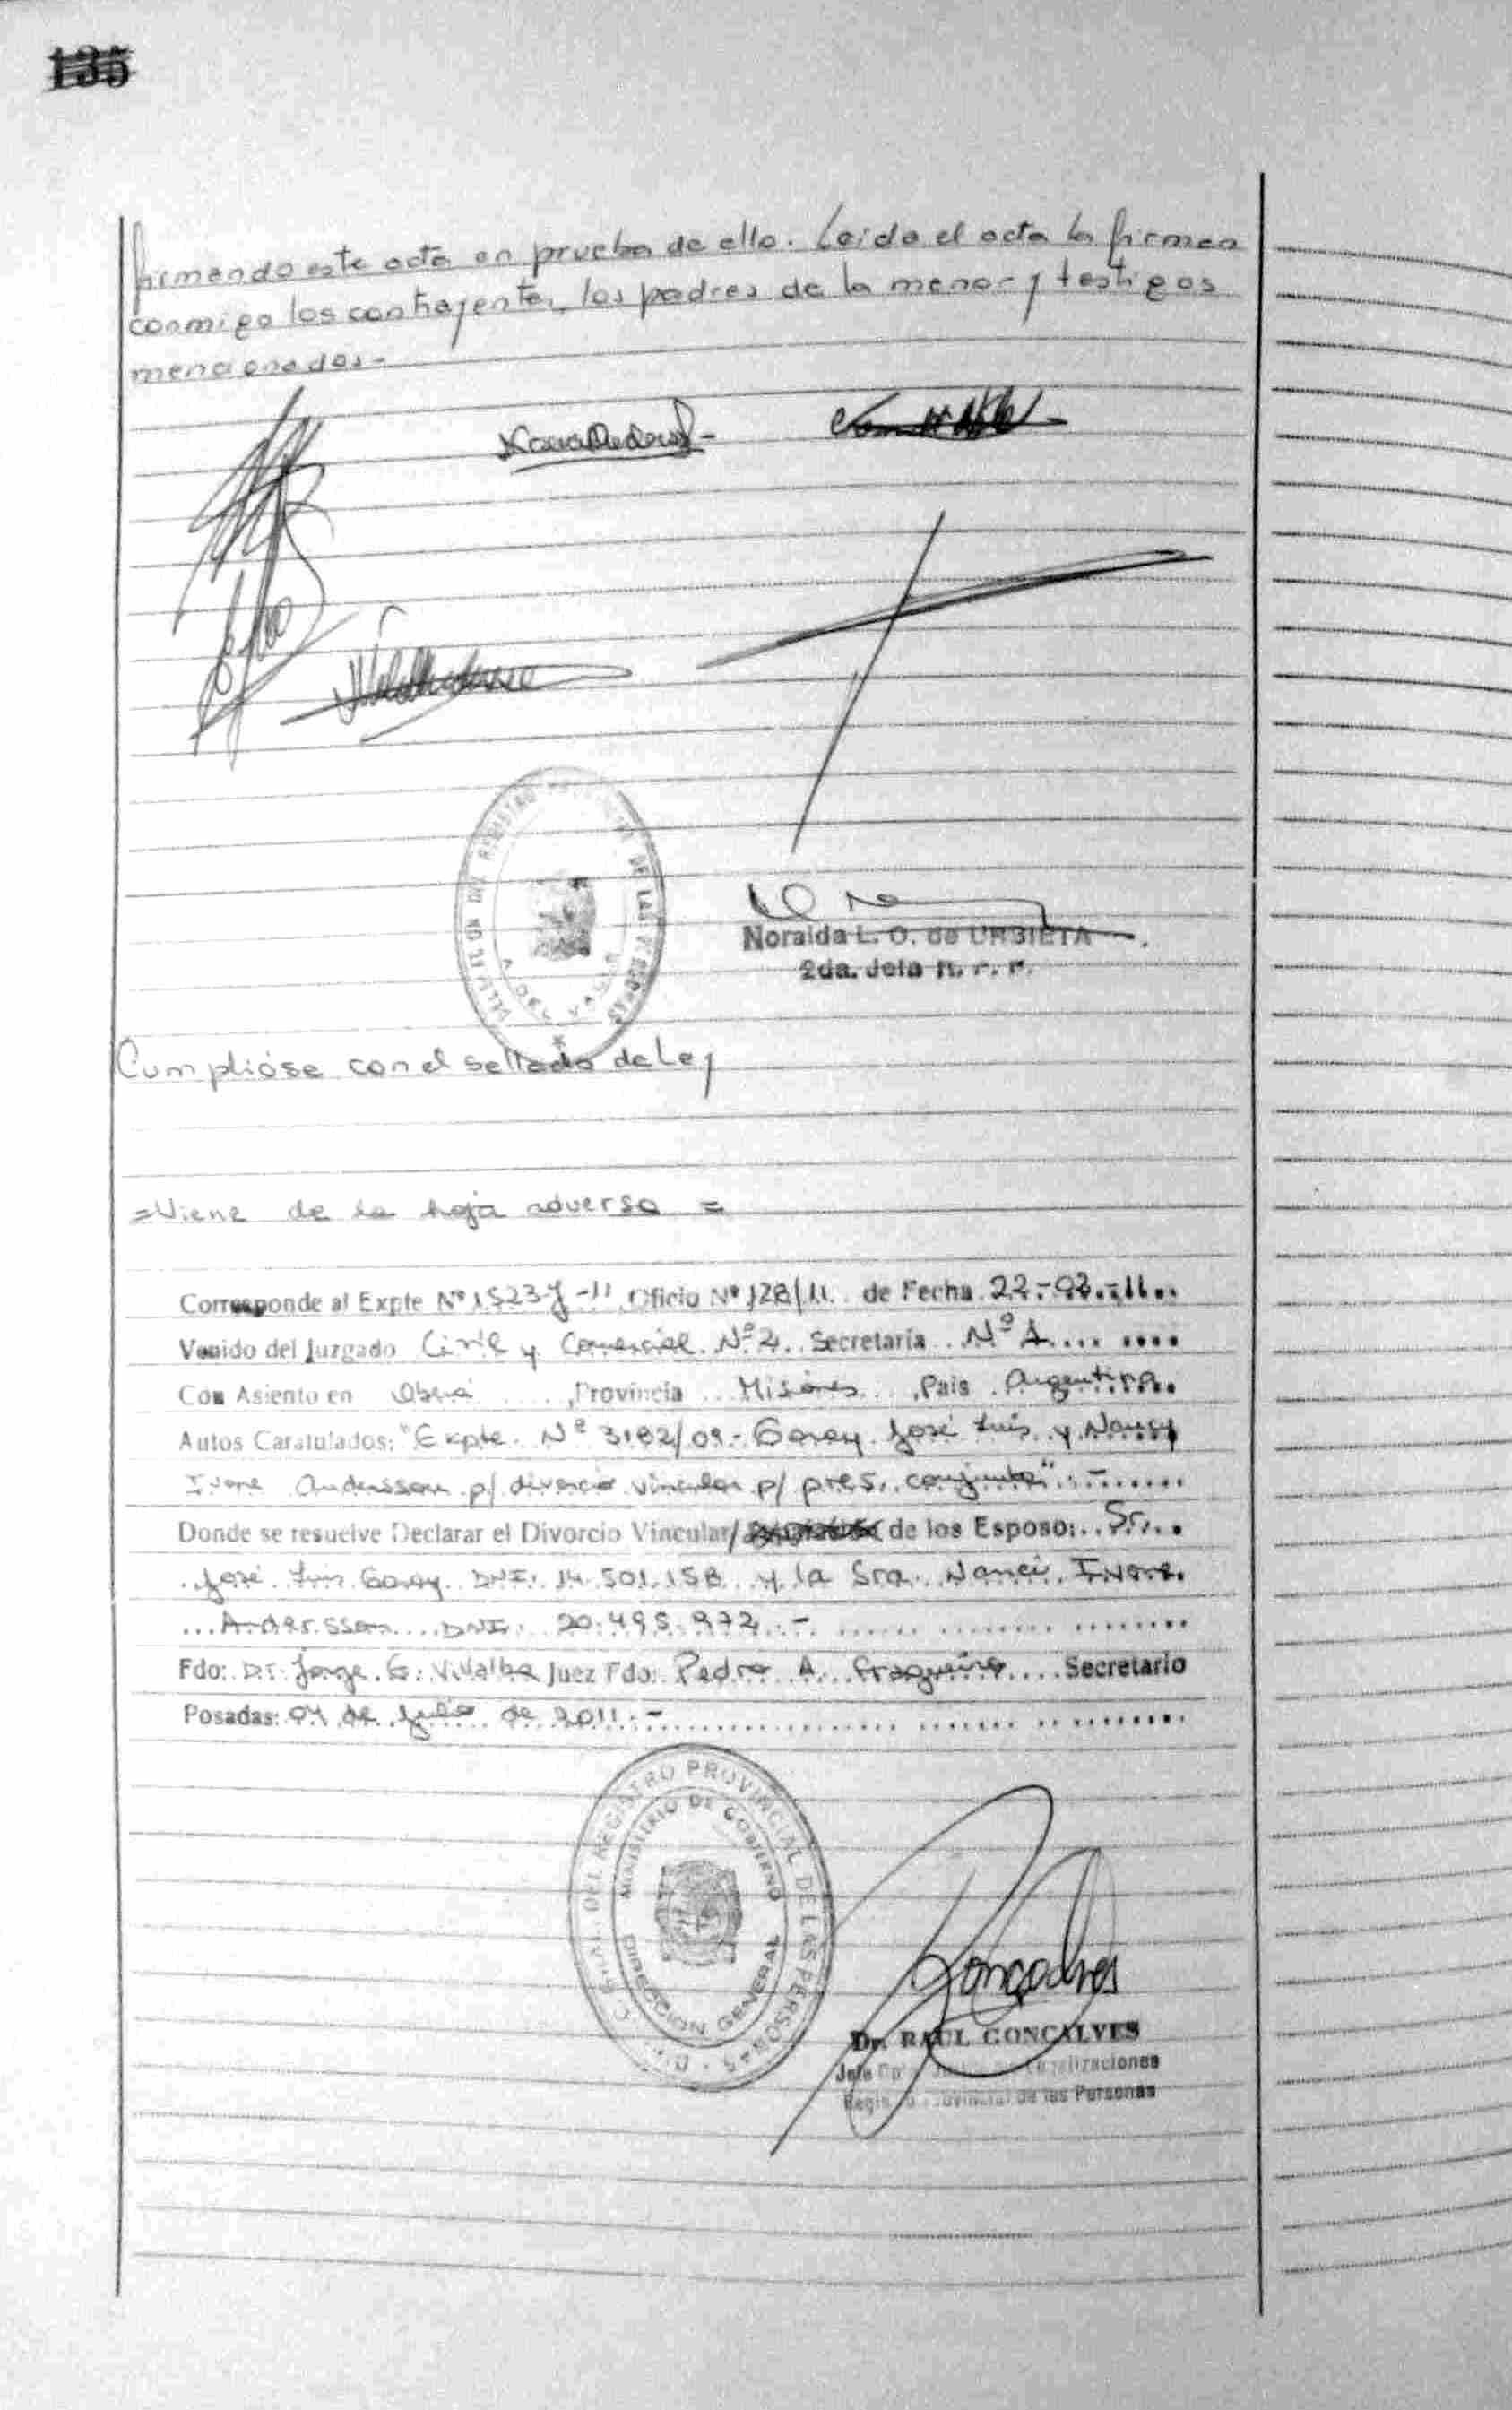 135
firmando este acta en prueba de ello. Leida el acta la firman
conmigo los contrayentes, los padres de la menor y testigos
mencionados-
Noralda L. O. de URBIETA
2da. Jefa R. P. P.
Cumplióse con el sellado de Ley
=Viene de la hoja adversa =
Corresponde al Expte Nº 1523 -11 Oficio Nº 128/11. de Fecha 22-03-11..
Venido del Juzgado Civil y Comercial Nº 2. Secretaría Nº 1........
Con Asiento en Oberá ...., Provincia .. Misiones ..., Pais . Argentina..
Autos Caratulados: "Expte. Nº 3182/09.- Garay José Luis y Nancy
Ivone Andersson p/ divorcio vincular p/ pres. conjunta".-.......
Donde se resuelve Declarar el Divorcio Vincular/ de los Esposo: .. Sr...
. José Luis Garay. DNI. 14.501.158 y la Sra. Nanci. Ivone.
... Andersson.... DNI. 20.495.972.- ...... ........ ........
Fdo: Dr. Jorge. E. Villalba Juez Fdo: Pedro A. Fragueiro.... Secretario
Posadas: 04 de Julio de 2011.-........................ ....... .. ........
REGISTRO PROVINCIAL DE LAS PERSONAS
MINISTERIO DE GOBIERNO
DIRECCION GENERAL
Goncalves
Dr. RAUL GONCALVES
Jefe Legalizaciones
Registro Provincial de las Personas